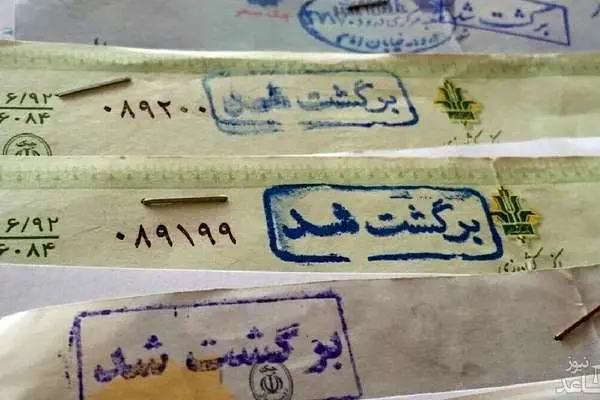 برگشت شد
برگشت شد
۰۸۹۲۰۰
۶/۹۲
۶۰۸۴
برگشت شد
۰۸۹۱۹۹
۶/۹۲
۶۰۸۴
برگشت شد
نیوز